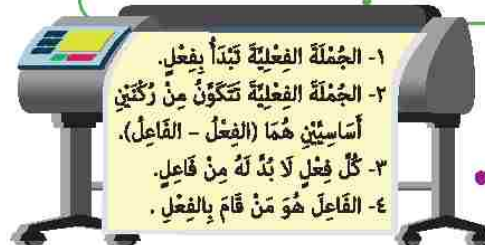 ١- الجُمْلَةَ الفِعْلِيَّةَ تَبْدَأُ بِفِعْلٍ.
٢- الجُمْلَةَ الفِعْلِيَّةَ تَتَكَوَّنُ مِنْ رُكْنَيْنِ
أَسَاسِيَّيْنِ هُمَا (الفِعْلُ – الفَاعِلُ).
٣- كُلَّ فِعْلٍ لَا بُدَّ لَهُ مِنْ فَاعِلٍ.
٤- الفَاعِلَ هُوَ مَنْ قَامَ بِالفِعْلِ .